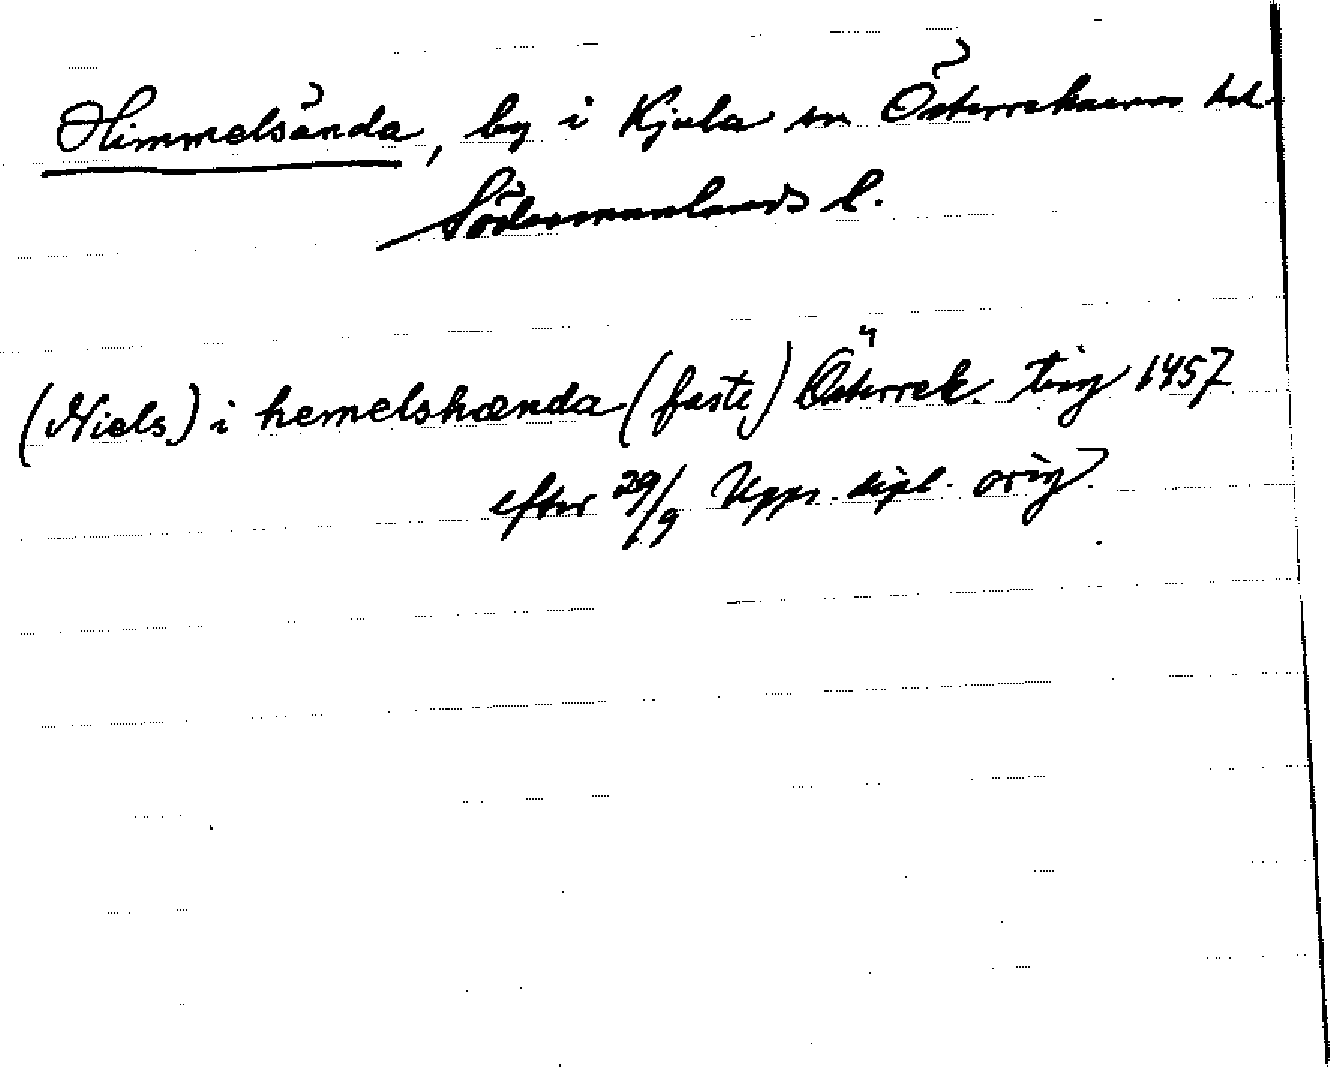 Himmelsända, by i Kjula sn Österrekarne hd
Södermanlands l.
(Niels) i hemelshænda (faste) Österrek. ting 1457
efter 29/9 Upps. dipl. orig.